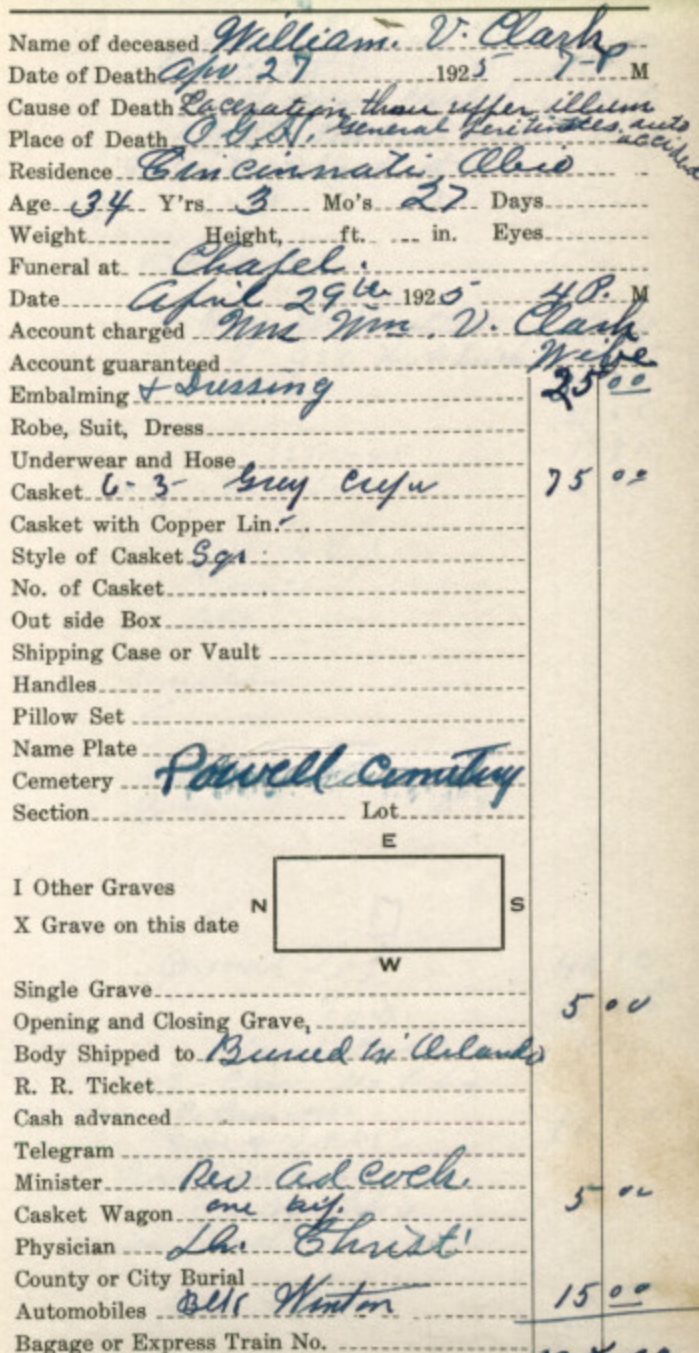 Name of deceased William. V. Clark
Date of Death Apr 27 1925 7-P M
Cause of Death Laceration thru upper illium
Place of Death O.G.H. General Peritinites auto accident
Residence Cincinnati, Ohio
Age 34 Y'rs 3 Mo's 27 Days
Weight Height, ft. in. Eyes
Funeral at Chapel.
Date April 29th 1925 4 P. M
Account charged Mrs Wm. V. Clark
Account guaranteed Wife
Embalming & Dressing 25 00
Robe, Suit, Dress
Underwear and Hose
Casket 6-3- Grey Crepe 75 00
Casket with Copper Lin.
Style of Casket Sqr
No. of Casket
Out side Box
Shipping Case or Vault
Handles
Pillow Set
Name Plate
Cemetery Powell Cemetery
Section Lot
E
I Other Graves
N S
X Grave on this date
W
Single Grave
Opening and Closing Grave, 5 00
Body Shipped to Buried in Orlando
R. R. Ticket
Cash advanced
Telegram
Minister Rev Adcock.
Casket Wagon one 5 00
Physician Dr. Christ
County or City Burial
Automobiles Winton 15 00
Bagage or Express Train No.